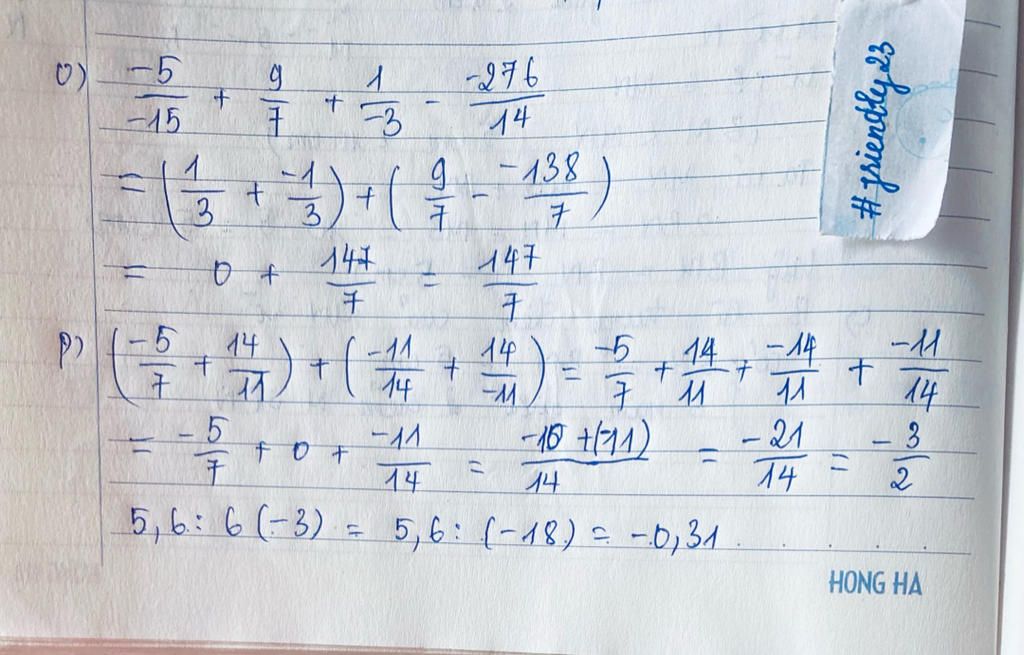 o) \frac{-5}{-15} + \frac{9}{7} + \frac{1}{-3} - \frac{-276}{14}
= (\frac{1}{3} + \frac{-1}{3}) + (\frac{9}{7} - \frac{-138}{7})
= 0 + \frac{147}{7} = \frac{147}{7}
p) (\frac{-5}{7} + \frac{14}{11}) + (\frac{-11}{14} + \frac{14}{-11}) = \frac{-5}{7} + \frac{14}{11} + \frac{-14}{11} + \frac{-11}{14}
= \frac{-5}{7} + 0 + \frac{-11}{14} = \frac{-10 + (-11)}{14} = \frac{-21}{14} = \frac{-3}{2}
5,6 : 6 (-3) = 5,6 : (-18) = -0,31
HONG HA